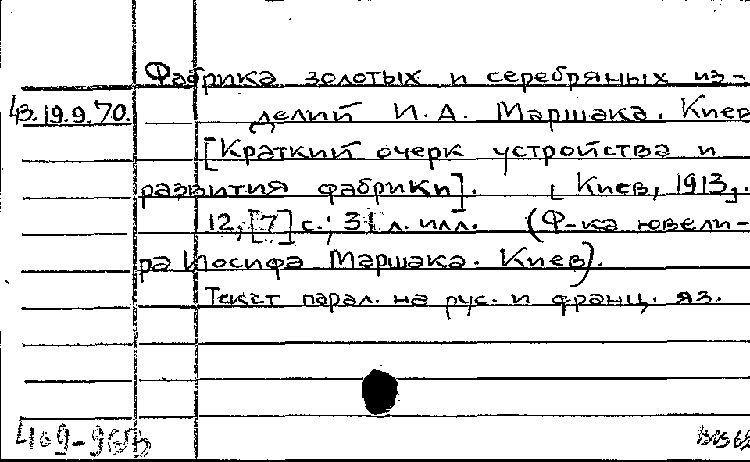 Фабрика золотых и серебряных из-
13.19.9.70. делий И. А. Маршака. Киев
[Краткий очерк устройства и
развития фабрики]. [Киев, 1913].
12, [7] с.; 31 л. илл. (Ф-ка ювели-
ра Иосифа Маршака. Киев).
Текст парал. на рус. и франц. яз.